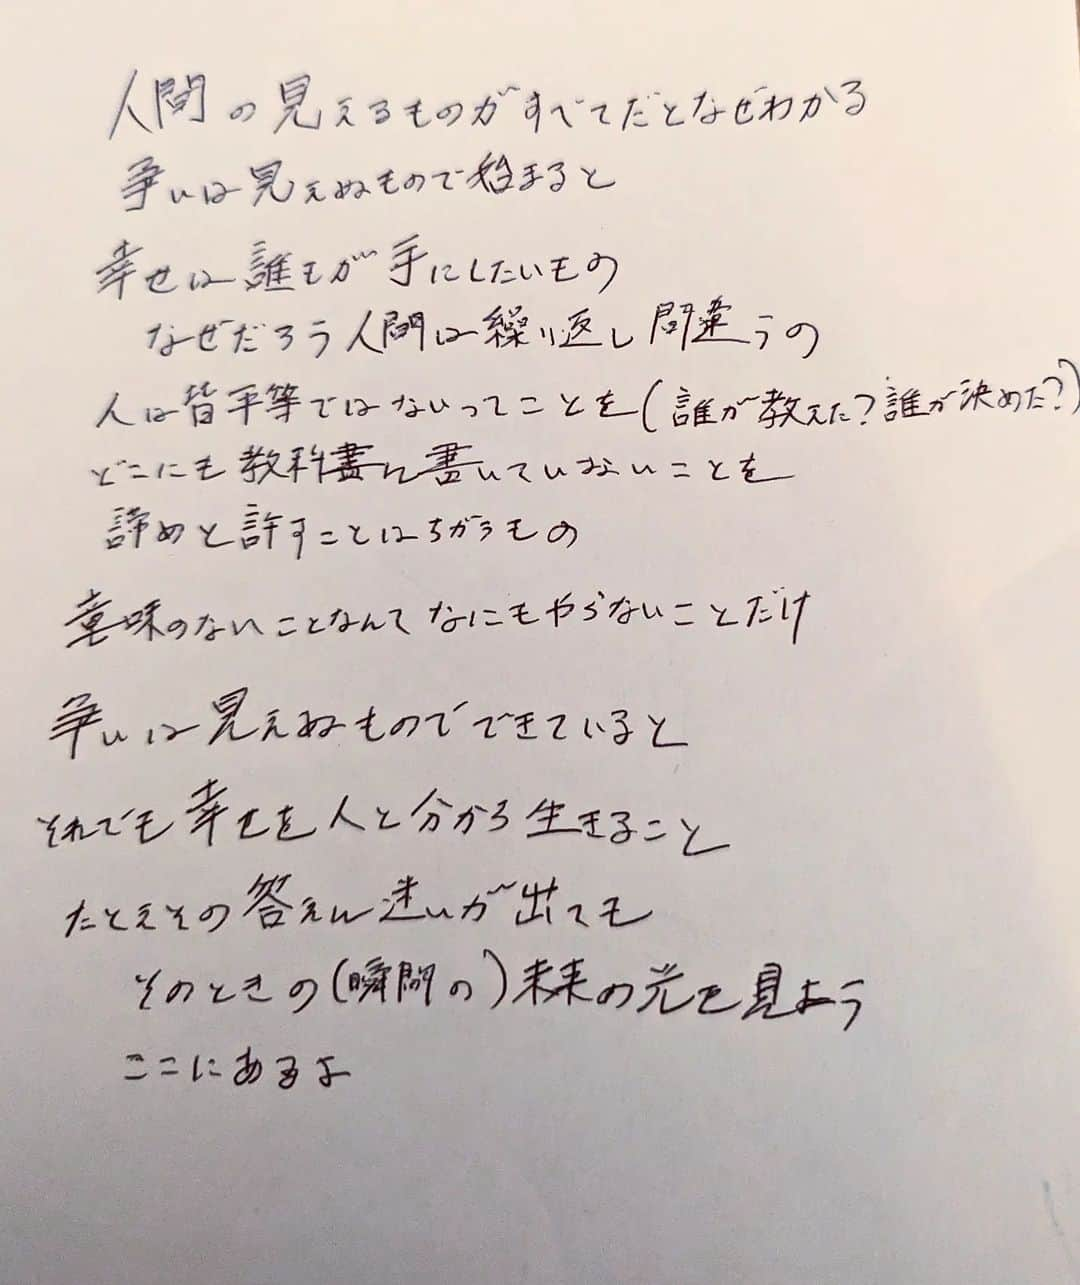 人間の見えるものがすべてだとなぜわかる
争いは見えぬもので始まると
幸せは誰もが手にしたいもの
なぜだろう人間は繰り返し間違うの
人は皆平等ではないってことを(誰が教えた?誰が決めた?)
どこにも教科書に書いていないことを
諦めと許すことはちがうもの
意味のないことなんてなにもやらないことだけ
争いは見えぬものでできていると
それでも幸せを人と分かち生きること
たとえその答えに迷いが出ても
そのときの(瞬間の)未来の光を見よう
ここにあるよ